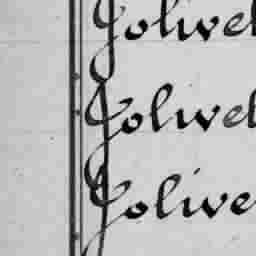 Jolivet
Jolivet
Jolive